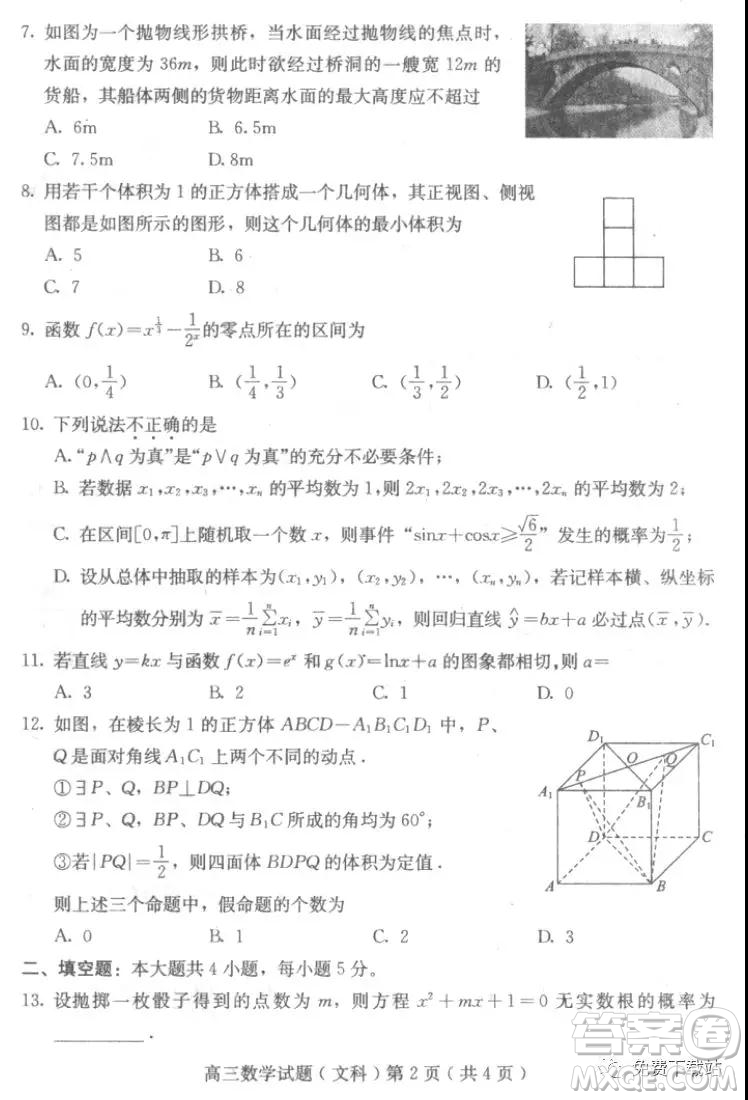 7. 如图为一个抛物线形拱桥，当水面经过抛物线的焦点时，
水面的宽度为 36m，则此时欲经过桥洞的一艘宽 12m 的
货船，其船体两侧的货物距离水面的最大高度应不超过
A. 6m B. 6.5m
C. 7.5m D. 8m
8. 用若干个体积为 1 的正方体搭成一个几何体，其正视图、侧视
图都是如图所示的图形，则这个几何体的最小体积为
A. 5 B. 6
C. 7 D. 8
9. 函数 f(x)=x^{1/3}-1/2^x 的零点所在的区间为
A. (0,1/4) B. (1/4,1/3) C. (1/3,1/2) D. (1/2,1)
10. 下列说法不正确的是
A.“p∧q 为真”是“p∨q 为真”的充分不必要条件；
B. 若数据 x₁,x₂,x₃,…,xₙ 的平均数为 1,则 2x₁,2x₂,2x₃,…,2xₙ 的平均数为 2；
C. 在区间[0,π]上随机取一个数 x，则事件“sinx+cosx≥√6/2”发生的概率为1/2；
D. 设从总体中抽取的样本为(x₁,y₁)，(x₂,y₂)，…，(xₙ,yₙ)，若记样本横、纵坐标
的平均数分别为 x̄=1/n∑_{i=1}^{n}xᵢ，ȳ=1/n∑_{i=1}^{n}yᵢ，则回归直线 ŷ=bx+a 必过点(x̄,ȳ).
11. 若直线 y=kx 与函数 f(x)=eˣ 和 g(x)=lnx+a 的图象都相切,则 a=
A. 3 B. 2 C. 1 D. 0
12. 如图，在棱长为 1 的正方体 ABCD－A₁B₁C₁D₁ 中，P、
Q 是面对角线 A₁C₁ 上两个不同的动点.
①∃P、Q，BP⊥DQ；
②∃P、Q，BP、DQ 与 B₁C 所成的角均为 60°；
③若|PQ|=1/2，则四面体 BDPQ 的体积为定值.
则上述三个命题中，假命题的个数为
A. 0 B. 1 C. 2 D. 3
D₁ C₁
O Q
P
A₁ B₁
D C
A B
二、填空题：本大题共 4 小题，每小题 5 分。
13. 设抛掷一枚骰子得到的点数为 m，则方程 x²+mx+1=0 无实数根的概率为
________.
高三数学试题（文科）第 2 页（共 4 页）
答案卷
免费下载站